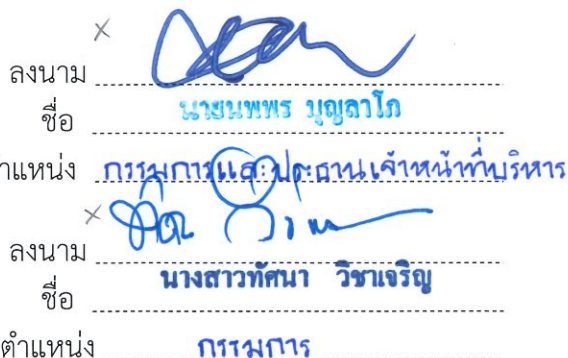 ลงนาม
ชื่อ นายนพพร บุญลาโภ
ตำแหน่ง กรรมการและประธานเจ้าหน้าที่บริหาร
ลงนาม
ชื่อ นางสาวทัศนา วิชาเจริญ
ตำแหน่ง กรรมการ